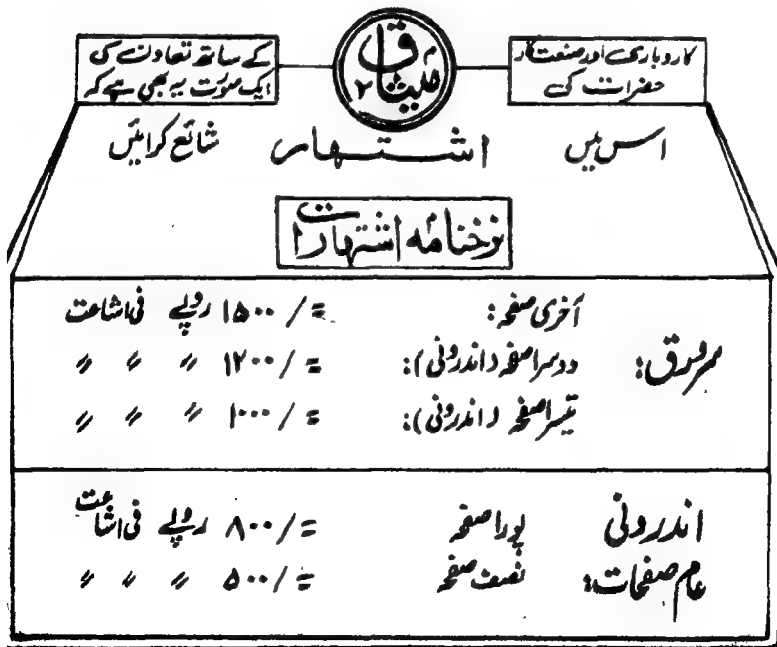 کاروباری اور صنعت کار
حضرات کی
میثاق
کے ساتھ تعاون کی
ایک صورت یہ بھی ہے کہ
اس میں اشتہار شائع کرائیں
نرخنامہ اشتہارات
سرورق:
آخری صفحہ: ۱۵۰۰/= روپے فی اشاعت
دوسرا صفحہ (اندرونی): ۱۲۰۰/= 〃 〃 〃
تیسرا صفحہ (اندرونی): ۱۰۰۰/= 〃 〃 〃
اندرونی
عام صفحات:
پورا صفحہ ۸۰۰/= روپے فی اشاعت
نصف صفحہ ۵۰۰/= 〃 〃 〃